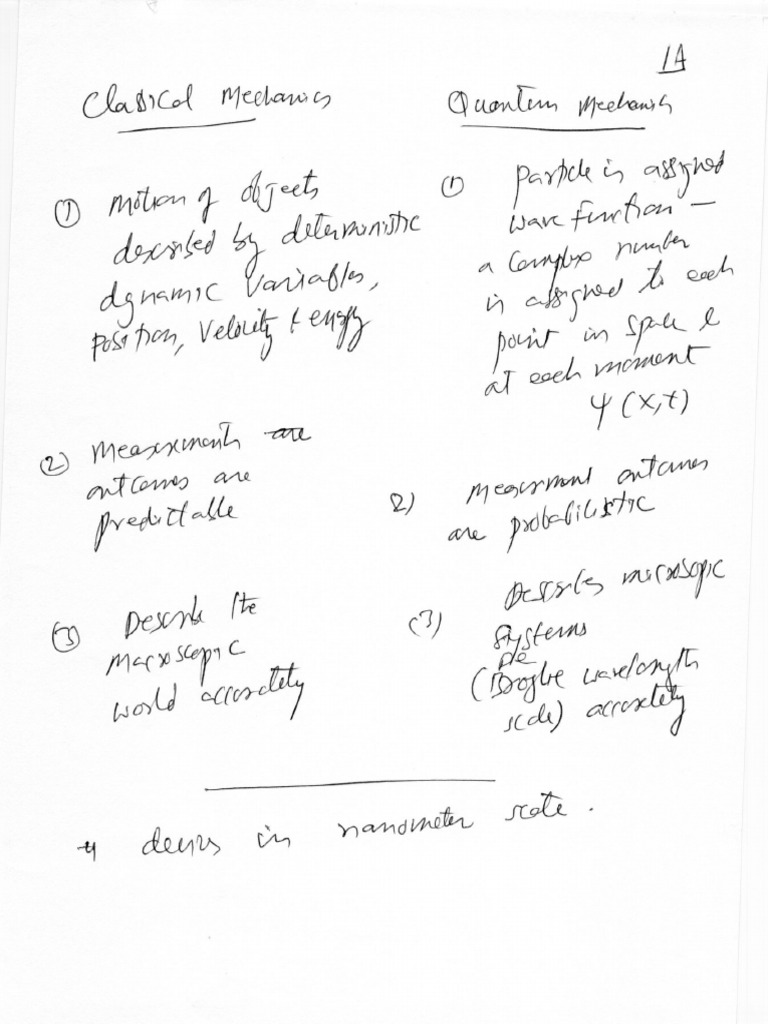 1A
Classical Mechanics
Quantum Mechanics
① Motion of objects
described by deterministic
dynamic variables,
position, velocity & energy
① particle is assigned
wave function —
a complex number
is assigned to each
point in space &
at each moment
ψ (x,t)
② Measurements are
outcomes are
predictable
2) Measurement outcomes
are probabilistic
③ Describe the
macroscopic
world accurately
(3) Describes microsopic
systems
de
(Broglie wavelength
scale) accurately
devices in nanometer scale .